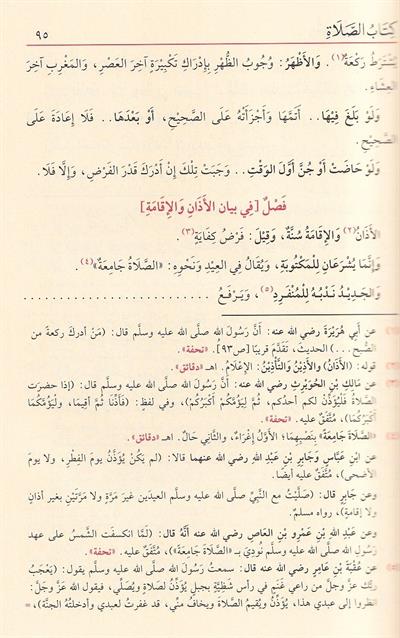 كِتَابُ الصَّلَاةِ ٩٥
يُشْتَرَطُ رَكْعَةٌ(١). وَالأَظْهَرُ: وُجُوبُ الظُّهْرِ بِإِدْرَاكِ تَكْبِيرَةٍ آخِرَ العَصْرِ، وَالمَغْرِبِ آخِرَ
العِشَاءِ.
وَلَوْ بَلَغَ فِيهَا.. أَتَمَّهَا وَأَجْزَأَتْهُ عَلَى الصَّحِيحِ، أَوْ بَعْدَهَا.. فَلَا إِعَادَةَ عَلَى
الصَّحِيحِ.
وَلَوْ حَاضَتْ أَوْ جُنَّ أَوَّلَ الوَقْتِ.. وَجَبَتْ تِلْكَ إِنْ أَدْرَكَ قَدْرَ الفَرْضِ، وَإِلَّا فَلَا.
فَصْلٌ [فِي بيان الأَذَانِ وَالإِقَامَةِ]
الأَذَانُ(٢) وَالإِقَامَةُ سُنَّةٌ، وَقِيلَ: فَرْضُ كِفَايَةٍ(٣).
وَإِنَّمَا يُشْرَعَانِ لِلْمَكْتُوبَةِ، وَيُقَالُ فِي العِيْدِ وَنَحْوِهِ: «الصَّلَاةَ جَامِعَةً»(٤).
وَالجَدِيْدُ نَدْبُهُ لِلْمُنْفَرِدِ(٥)، وَيَرْفَعُ ........................
(١) عن أَبِي هُرَيْرَةَ رضي الله عنه: أَنَّ رَسُولَ اللهِ صلَّى الله عليه وسلَّم قال: (مَنْ أدركَ ركعةً من
الصُّبح ...) الحديثَ، تَقَدَّمَ قريبًا [ص٩٣]. «تحفة».
(٢) قوله: (الأَذَانُ) وَالأَذِيْنُ وَالتَّأذِيْنُ: الإِعْلَامُ. اهـ «دقائق».
(٣) عن مَالِكِ بْنِ الحُوَيْرِثِ رضي الله عنه: أنَّ رسولَ اللهِ صلَّى الله عليه وسلَّم قال: (إذا حضرتِ
الصَّلاةُ فَلْيُؤَذِّنْ لكم أحدُكم، ثُمَّ لِيَؤُمَّكُمْ أَكْبَرُكُمْ)، وفي لفظ: (فَأَذِّنَا ثُمَّ أَقِيمَا، وَلْيَؤُمَّكُمَا
أَكْبَرُكُمَا)، مُتَّفَقٌ عليه. «تحفة».
(٤) «الصَّلَاةَ جَامِعَةً» بِنَصْبِهِمَا؛ الأوَّلُ إِغْرَاءٌ، والثَّانِي حَالٌ. اهـ «دقائق».
عن ابْنِ عَبَّاسٍ وَجَابِرِ بْنِ عَبْدِ اللهِ رضي الله عنهما قالا: (لم يَكُنْ يُؤَذَّنُ يومَ الفِطْرِ، ولا يومَ
الأضحى)، مُتَّفَقٌ عليه أيضًا.
وعن جَابِرٍ قال: (صَلَّيْتُ مع النَّبِيِّ صلَّى الله عليه وسلَّم العيدَين غيرَ مَرَّةٍ ولا مَرَّتَيْنِ بغيرِ أذانٍ
ولا إقامةٍ)، رواه مسلم.
وعن عَبْدِ اللهِ بْنِ عَمْرِو بْنِ العَاصِ رضي الله عنه أنَّهُ قال: (لَمَّا انكسفَتِ الشَّمسُ على عهدِ
رَسُولِ اللهِ صلَّى الله عليه وسلَّم نُودِيَ بـ «الصَّلَاةَ جَامِعَةً»)، مُتَّفَقٌ عليه. «تحفة».
(٥) عن عُقْبَةَ بْنِ عَامِرٍ رضي الله عنه قال: سمعتُ رسولَ اللهِ صلَّى الله عليه وسلَّم يقول: (يَعْجَبُ
ربُّكَ عزَّ وجلَّ مِن راعي غَنَمٍ في رأسِ شَظِيَّةٍ بجبلٍ يُؤَذِّنُ لصلاةٍ ويُصَلِّي، فيقول الله عزَّ وجلَّ:
انظروا إلى عبدي هذا، يُؤَذِّنُ ويُقيمُ الصَّلاةَ ويخافُ منِّي، قد غفرتُ لعبدي وأدخلتُهُ الجنَّةَ)،=